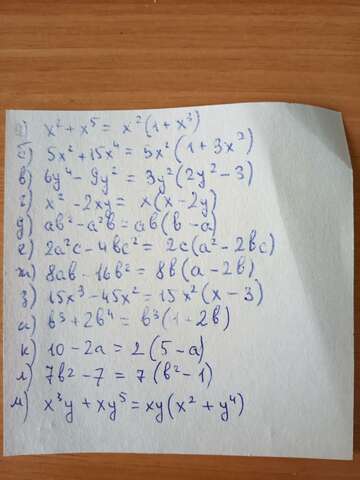 а) x² + x⁵ = x²(1 + x³)
б) 5x² + 15x⁴ = 5x²(1 + 3x²)
в) 6y⁴ - 9y² = 3y²(2y² - 3)
г) x² - 2xy = x(x - 2y)
д) ab² - a²b = ab(b - a)
е) 2a²c - 4bc² = 2c(a² - 2bc)
ж) 8ab - 16b² = 8b(a - 2b)
з) 15x³ - 45x² = 15x²(x - 3)
и) b³ + 2b⁴ = b³(1 + 2b)
к) 10 - 2a = 2(5 - a)
л) 7b² - 7 = 7(b² - 1)
м) x³y + xy⁵ = xy(x² + y⁴)